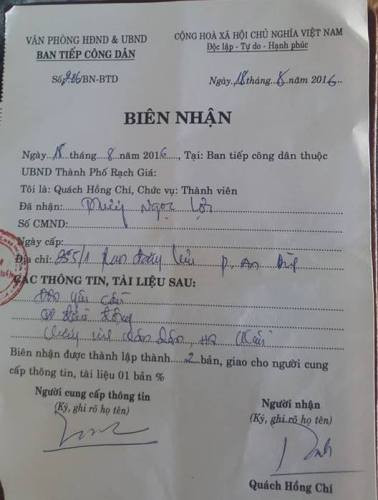 VĂN PHÒNG HĐND & UBND
BAN TIẾP CÔNG DÂN
CỘNG HOÀ XÃ HỘI CHỦ NGHĨA VIỆT NAM
Độc lập - Tự do - Hạnh phúc
Số: /BN-BTD
Ngày 18 tháng 8 năm 2016
BIÊN NHẬN
Ngày 18 tháng 8 năm 2016, Tại: Ban tiếp công dân thuộc
UBND Thành Phố Rạch Giá:
Tôi là: Quách Hồng Chí, Chức vụ: Thành viên
Đã nhận: Ngọc Lợi
Số CMND:
Ngày cấp:
Địa chỉ: 255/1 P. An
CÁC THÔNG TIN, TÀI LIỆU SAU:
Đơn yêu cầu
Biên nhận được thành lập thành 2 bản, giao cho người cung
cấp thông tin, tài liệu 01 bản %
Người cung cấp thông tin
(Ký, ghi rõ họ tên)
Người nhận
(Ký, ghi rõ họ tên)
Quách Hồng Chí